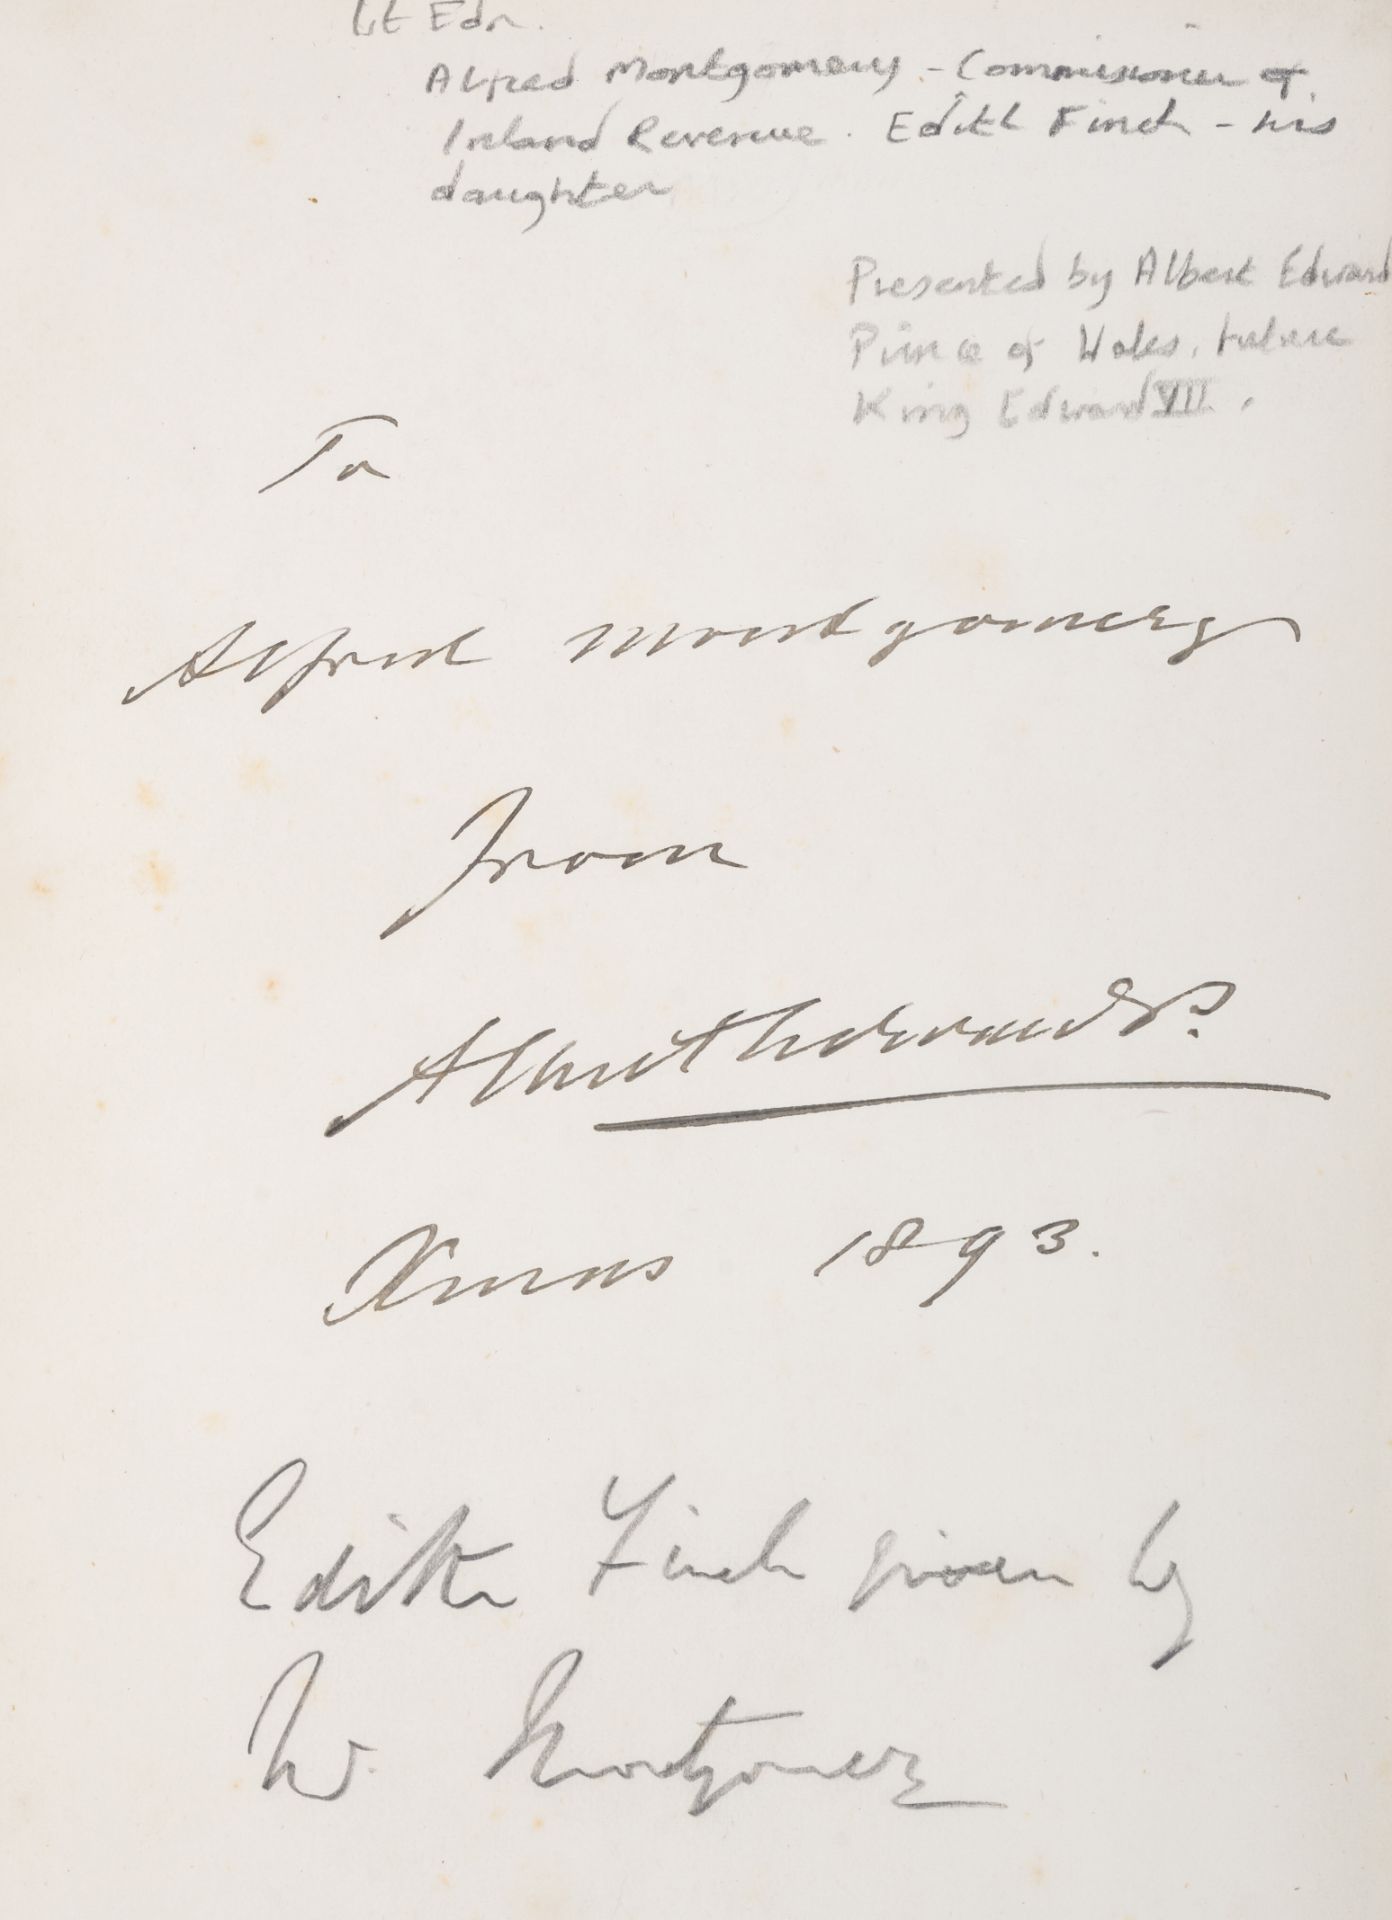 1st Edn.
Alfred Montgomery - Commissioner of
Inland Revenue. Edith Finch - his
daughter
Presented by Albert Edward
Prince of Wales, future
King Edward VII.
To
Alfred Montgomery
From
Albert Edward P.
Xmas 1893.
Edith Finch given by
Montgomery